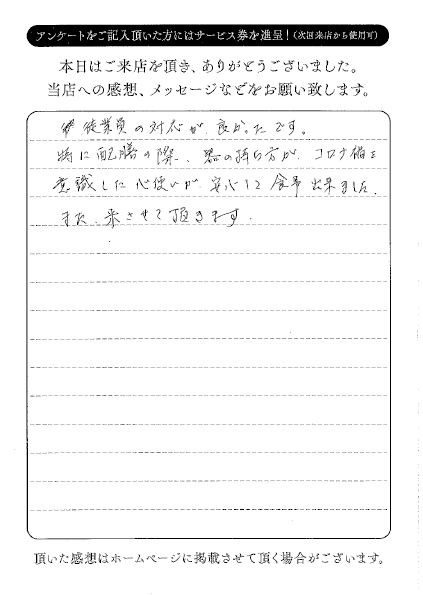 アンケートをご記入頂いた方にはサービス券を進呈！(次回来店から使用可)
本日はご来店を頂き、ありがとうございました。
当店への感想、メッセージなどをお願い致します。
従業員の対応が良かったです。
特に配膳の際、器の持ち方が、コロナ禍を
意識した心使いが、安心して食事出来ました。
また、来させて頂きます。
頂いた感想はホームページに掲載させて頂く場合がございます。